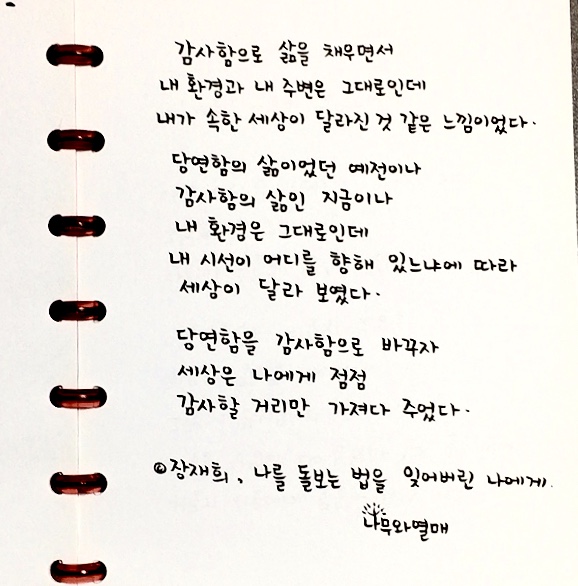 감사함으로 삶을 채우면서
내 환경과 내 주변은 그대로인데
내가 속한 세상이 달라진 것 같은 느낌이었다.
당연함의 삶이었던 예전이나
감사함의 삶인 지금이나
내 환경은 그대로인데
내 시선이 어디를 향해 있느냐에 따라
세상이 달라 보였다.
당연함을 감사함으로 바꾸자
세상은 나에게 점점
감사할 거리만 가져다 주었다.
©장재희, 나를 돌보는 법을 잊어버린 나에게.
나무와열매